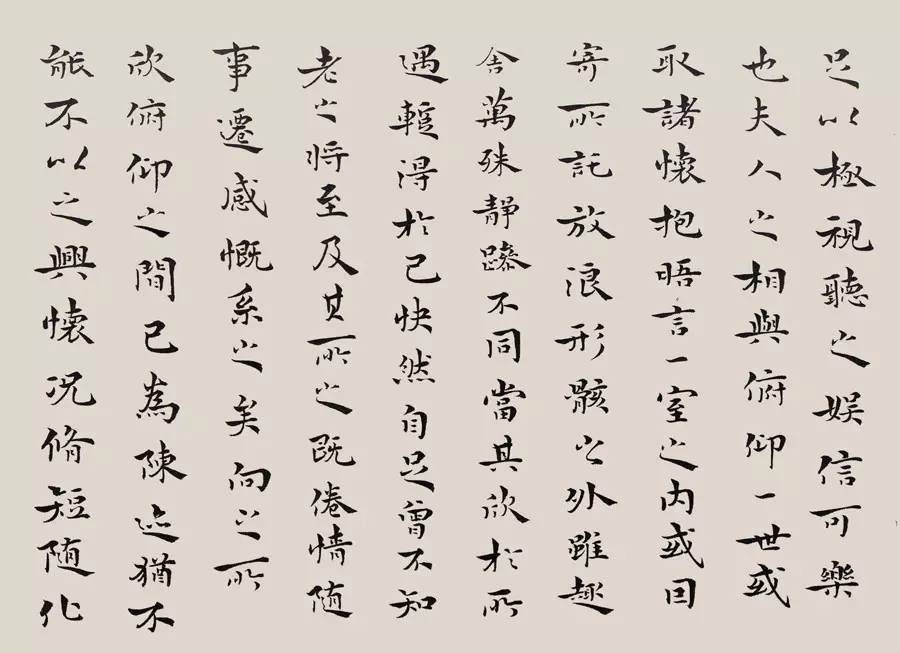 足以極視聽之娛信可樂
也夫人之相與俯仰一世或
取諸懷抱晤言一室之內或因
寄所託放浪形骸之外雖趣
舍萬殊靜躁不同當其欣於所
遇輒得於己快然自足曾不知
老之將至及其所之既倦情隨
事遷感慨系之矣向之所
欣俯仰之間已為陳迹猶不
能不以之興懷況脩短隨化